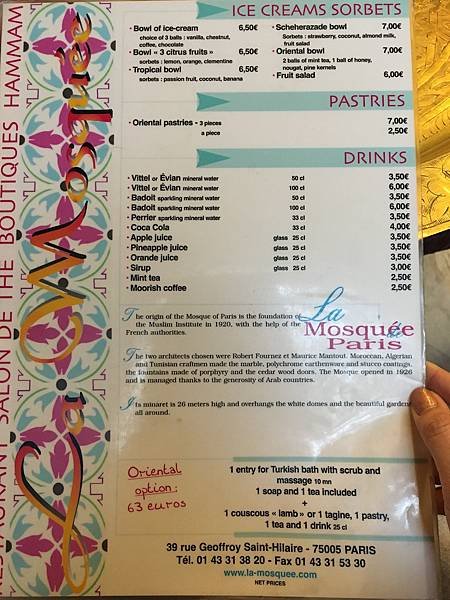 RESTAURANT SALON DE THE BOUTIQUES HAMMAM
La Mosquée
ICE CREAMS SORBETS
• Bowl of ice-cream 6,50€
choice of 3 balls : vanilla, chestnut,
coffee, chocolate
• Bowl « 3 citrus fruits » 6,50€
sorbets : lemon, orange, clementine
• Tropical bowl 6,50€
sorbets : passion fruit, coconut, banana
• Scheherazade bowl 7,00€
Sorbets : strawberry, coconut, almond milk,
fruit salad
• Oriental bowl 7,00€
2 balls of mint tea, 1 ball of honey,
nougat, pine kernels
• Fruit salad 6,00€
PASTRIES
• Oriental pastries - 3 pieces 7,00€
a piece 2,50€
DRINKS
• Vittel or Évian mineral water 50 cl 3,50€
• Vittel or Évian mineral water 100 cl 6,00€
• Badoit sparkling mineral water 50 cl 3,50€
• Badoit sparkling mineral water 100 cl 6,00€
• Perrier sparkling mineral water 33 cl 3,50€
• Coca Cola 33 cl 4,00€
• Apple juice glass 25 cl 3,50€
• Pineapple juice glass 25 cl 3,50€
• Orande juice glass 25 cl 3,50€
• Sirup glass 25 cl 3,00€
• Mint tea 2,50€
• Moorish coffee 2,50€
The origin of the Mosque of Paris is the foundation of
the Muslim Institute in 1920, with the help of the
French authorities.
La
Mosquée
de
Paris
The two architects chosen were Robert Fournez et Maurice Mantout. Moroccan, Algerian
and Tunisian craftmen made the marble, polychrome carthenware and stucco coatings,
the fountains made of porphyry and the cedar wood doors. The Mosque opened in 1926
and is managed thanks to the generosity of Arab countries.
Its minaret is 26 meters high and overhangs the white domes and the beautiful gardens
all around.
Oriental
option :
63 euros
1 entry for Turkish bath with scrub and
massage 10 mn
1 soap and 1 tea included
+
1 couscous « lamb » or 1 tagine, 1 pastry,
1 tea and 1 drink 25 cl
39 rue Geoffroy Saint-Hilaire - 75005 PARIS
Tél. 01 43 31 38 20 - Fax 01 43 31 53 30
www.la-mosquee.com
NET PRICES